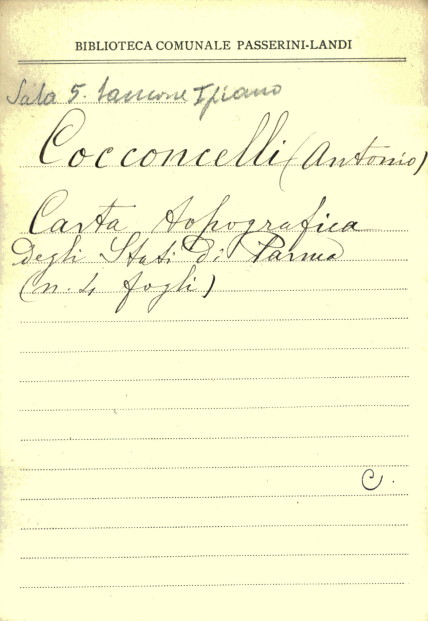 BIBLIOTECA COMUNALE PASSERINI-LANDI
Sala 5. I piano
Cocconcelli (Antonio)
Carta topografica
degli Stati di Parma
(n. 4 fogli)
C.